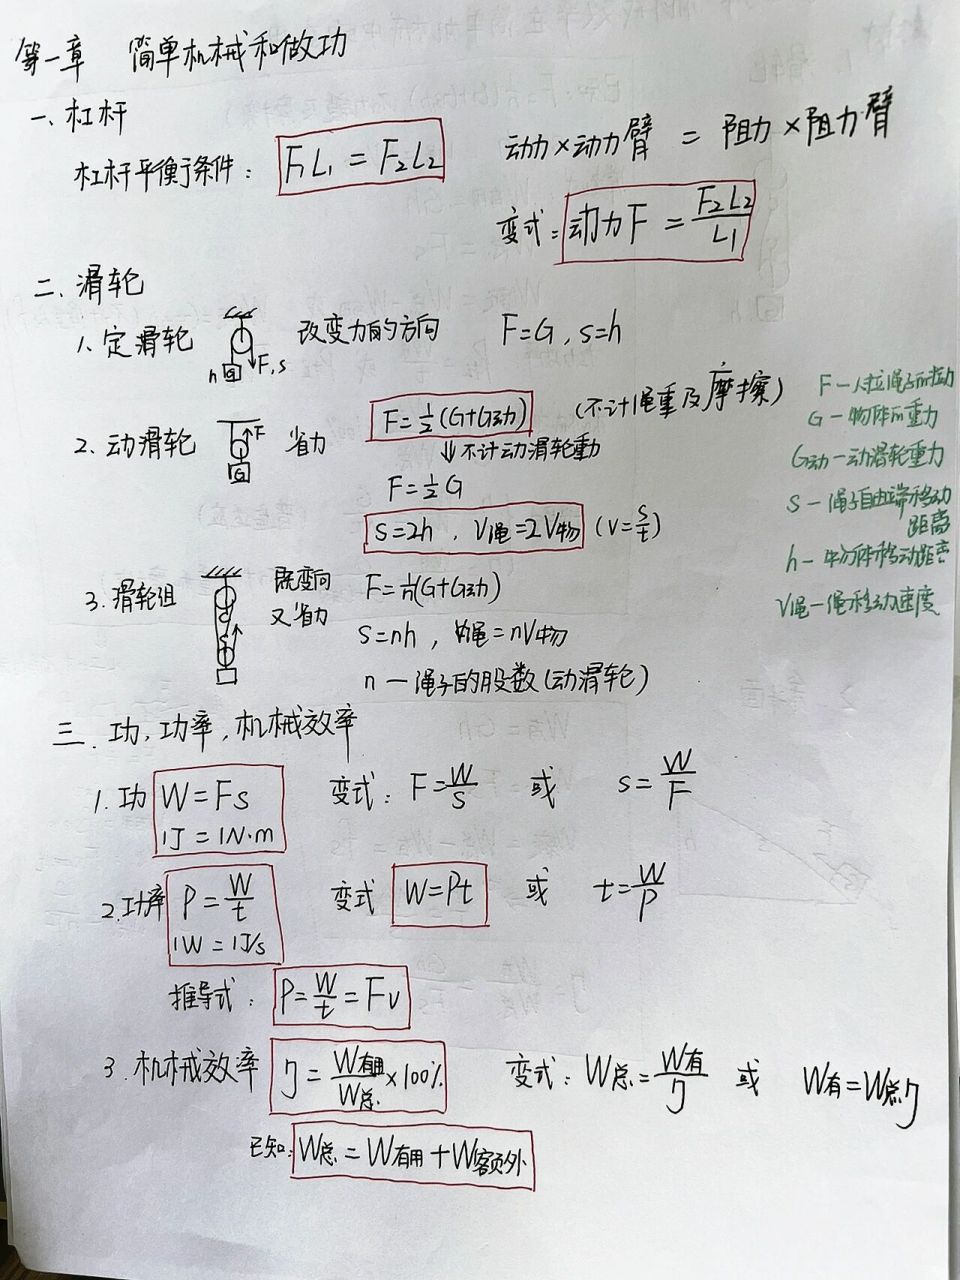 第一章 简单机械和做功
一、杠杆
杠杆平衡条件： F₁L₁ = F₂L₂ 动力×动力臂 = 阻力×阻力臂
变式： 动力F = F₂L₂/L₁
二、滑轮
1、定滑轮 h G F,s 改变力的方向 F=G，s=h
2、动滑轮 F G 省力 F=½(G+G动) (不计绳重及摩擦)
⇓不计动滑轮重动
F=½G
s=2h，V绳=2V物 (v=s/t)
3、滑轮组 既变向 F=1/n(G+G动)
又省力 s=nh，V绳=nV物
n—绳子的股数(动滑轮)
F—人拉绳子的拉动
G—物体的重力
G动—动滑轮重力
S—绳子自由端移动
距离
h—物体移动距离
V绳—绳移动速度
三、功，功率，机械效率
1.功 W=Fs 变式：F=W/s 或 s=W/F
1J=1N·m
2.功率 P=W/t 变式 W=Pt 或 t=W/P
1W=1J/s
推导式： P=W/t=Fv
3.机械效率 η=W有用/W总×100% 变式：W总=W有/η 或 W有=W总η
已知：W总=W有用+W额外